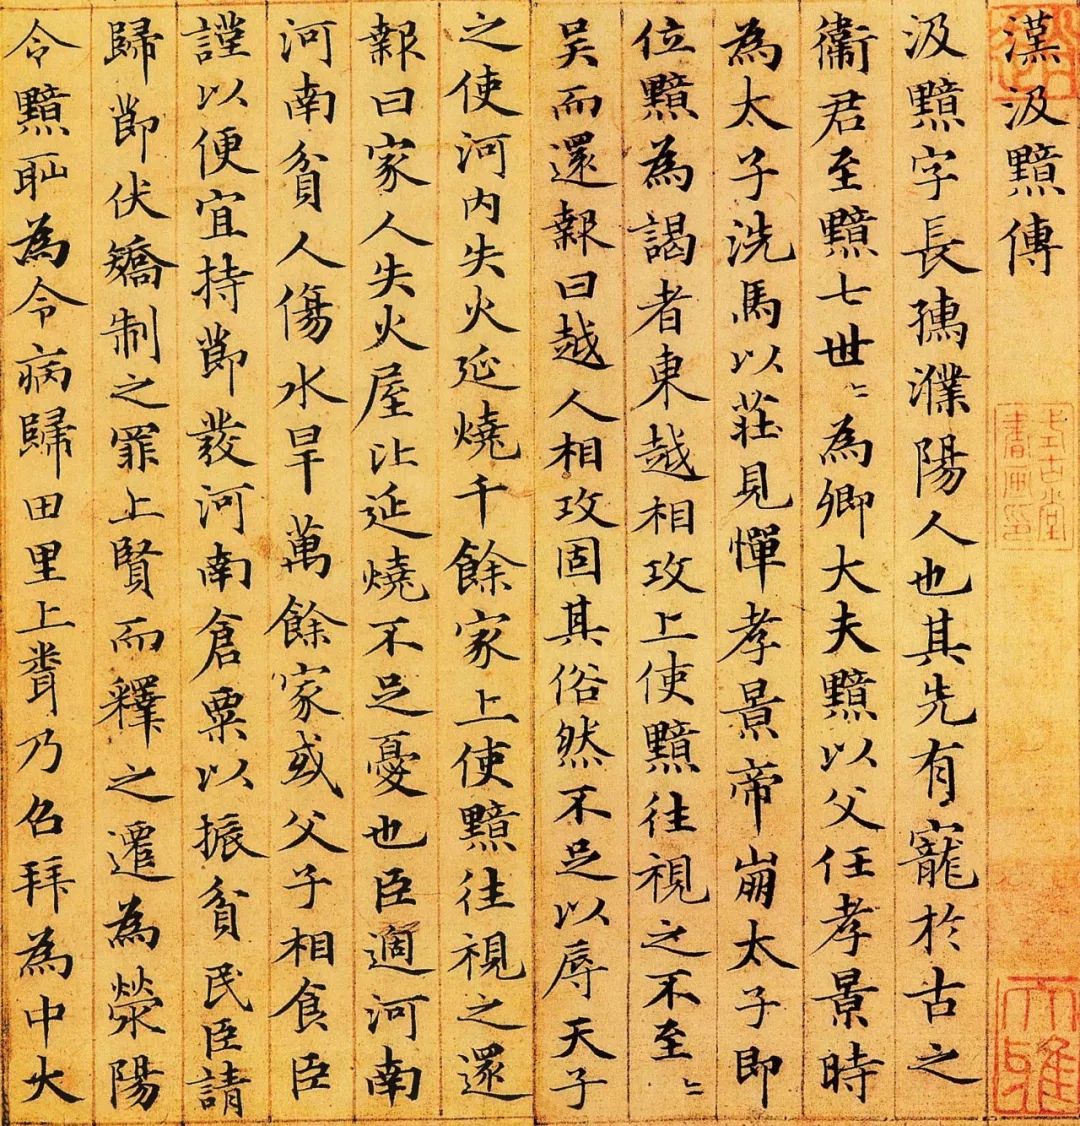 漢汲黯傳
汲黯字長孺濮陽人也其先有寵於古之
衛君至黯七世〻為卿大夫黯以父任孝景時
為太子洗馬以莊見憚孝景帝崩太子即
位黯為謁者東越相攻上使黯往視之不至〻
吳而還報曰越人相攻固其俗然不足以辱天子
之使河內失火延燒千餘家上使黯往視之還
報曰家人失火屋比延燒不足憂也臣適河南
河南貧人傷水旱萬餘家或父子相食臣
謹以便宜持節發河南倉粟以振貧民臣請
歸節伏矯制之罪上賢而釋之遷為滎陽
令黯耻為令病歸田里上聞乃召拜為中大
大雅